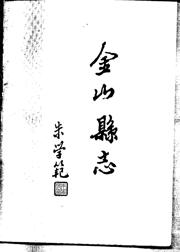 金山縣志
朱学範